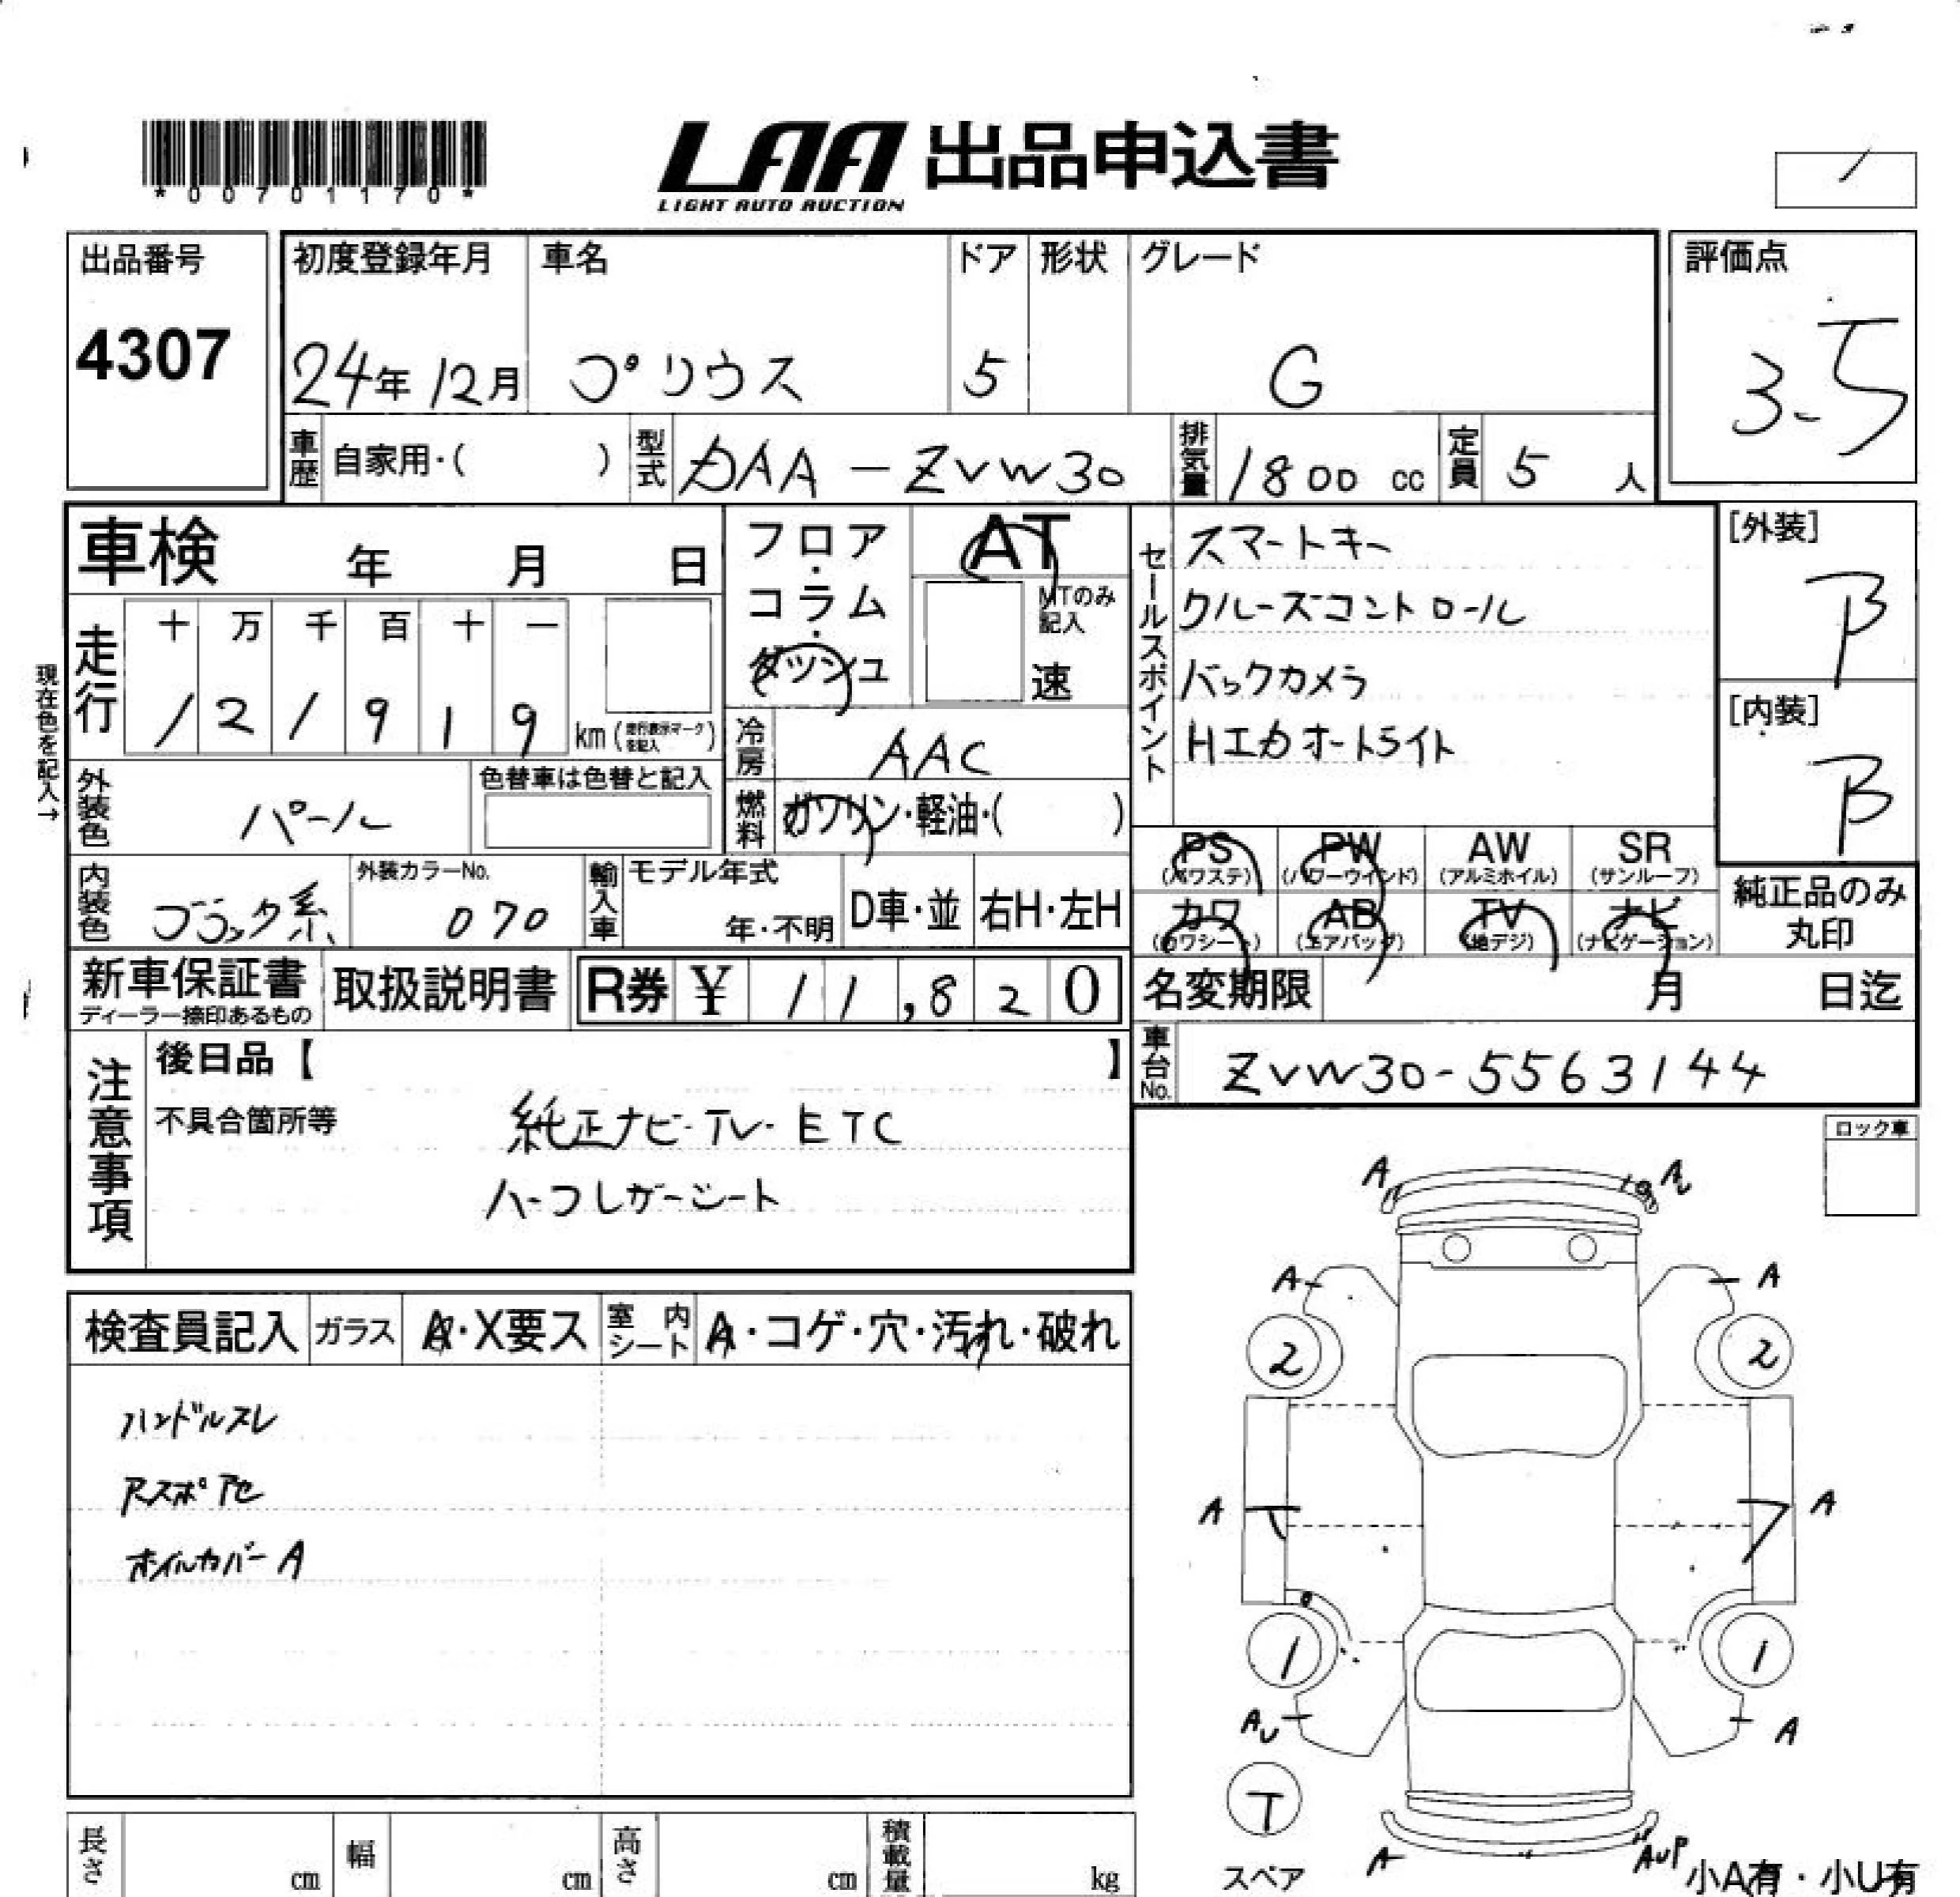 *00701170*
LAA 出品申込書
LIGHT AUTO AUCTION
出品番号
4307
初度登録年月 車名 ドア 形状 グレード
24年 12月 プリウス 5 G
評価点
3.5
車歴 自家用・( ) 型式 DAA-ZVW30 排気量 1800 cc 定員 5 人
車検 年 月 日
フロア・コラム・ダッシュ
AT
MTのみ記入
速
セールスポイント
スマートキー
クルーズコントロール
バックカメラ
HIDオートライト
[外装]
B
[内装]
B
現在色を記入→
走行 十 万 千 百 十 一
1 2 1 9 1 9 km (走行表示マークを記入)
冷房 AAC
外装色 パール
色替車は色替と記入
燃料 ガソリン・軽油・( )
PS (パワステ) PW (パワーウインド) AW (アルミホイル) SR (サンルーフ)
カワ (カワシート) AB (エアバッグ) TV (地デジ) ナビ (ナビゲーション)
純正品のみ丸印
内装色 ブラック系 外装カラーNo. 070 輸入車 モデル年式 年・不明 D車・並 右H・左H
新車保証書
ディーラー捺印あるもの
取扱説明書
R券 ¥ 11,820
名変期限 月 日迄
車台No. ZVW30-5563144
注意事項
後日品【 】
不具合箇所等
純正ナビ・TV・ETC
ハーフレザーシート
ロック車
検査員記入 ガラス A・X要ス 室内シート A・コゲ・穴・汚れ・破れ
ハンドルスレ
アスポアセ
ホイルカバーA
A
A
A A
2 2
A A
1 1
AU A
T
スペア
A AUP
小A有・小U有
長さ cm 幅 cm 高さ cm 積載量 kg